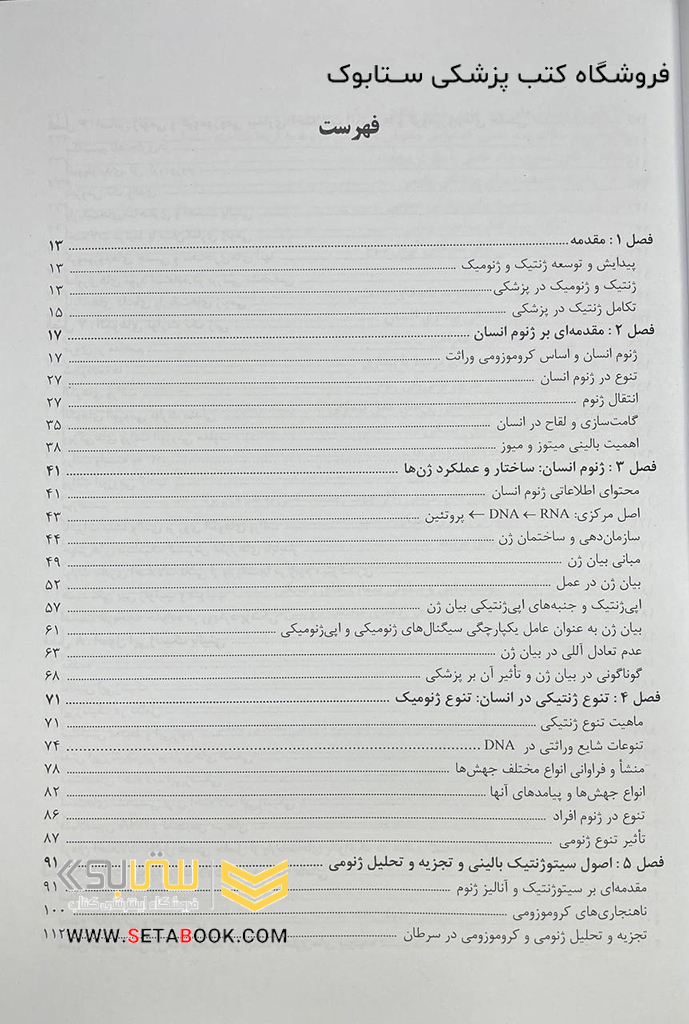 فروشگاه کتب پزشکی ستابوک
فهرست
فصل ۱ : مقدمه ........ ۱۳
پیدایش و توسعه ژنتیک و ژنومیک ........ ۱۳
ژنتیک و ژنومیک در پزشکی ........ ۱۳
تکامل ژنتیک در پزشکی ........ ۱۵
فصل ۲ : مقدمه‌ای بر ژنوم انسان ........ ۱۷
ژنوم انسان و اساس کروموزومی وراثت ........ ۱۷
تنوع در ژنوم انسان ........ ۲۷
انتقال ژنوم ........ ۲۷
گامت‌سازی و لقاح در انسان ........ ۳۵
اهمیت بالینی میتوز و میوز ........ ۳۸
فصل ۳ : ژنوم انسان: ساختار و عملکرد ژن‌ها ........ ۴۱
محتوای اطلاعاتی ژنوم انسان ........ ۴۱
اصل مرکزی: DNA ← RNA ← پروتئین ........ ۴۳
سازمان‌دهی و ساختمان ژن ........ ۴۴
مبانی بیان ژن ........ ۴۹
بیان ژن در عمل ........ ۵۲
اپی‌ژنتیک و جنبه‌های اپی‌ژنتیکی بیان ژن ........ ۵۷
بیان ژن به عنوان عامل یکپارچگی سیگنال‌های ژنومیکی و اپی‌ژنومیکی ........ ۶۱
عدم تعادل آللی در بیان ژن ........ ۶۳
گوناگونی در بیان ژن و تأثیر آن بر پزشکی ........ ۶۸
فصل ۴ : تنوع ژنتیکی در انسان: تنوع ژنومیک ........ ۷۱
ماهیت تنوع ژنتیکی ........ ۷۱
تنوعات شایع وراثتی در DNA ........ ۷۴
منشأ و فراوانی انواع مختلف جهش‌ها ........ ۷۸
انواع جهش‌ها و پیامدهای آنها ........ ۸۲
تنوع در ژنوم افراد ........ ۸۶
تأثیر تنوع ژنومی ........ ۸۷
فصل ۵ : اصول سیتوژنتیک بالینی و تجزیه و تحلیل ژنومی ........ ۹۱
مقدمه‌ای بر سیتوژنتیک و آنالیز ژنوم ........ ۹۱
ناهنجاری‌های کروموزومی ........ ۱۰۰
تجزیه و تحلیل ژنومی و کروموزومی در سرطان ........ ۱۱۲
ستابوک
فروشگاه اینترنتی کتاب
WWW.SETABOOK.COM